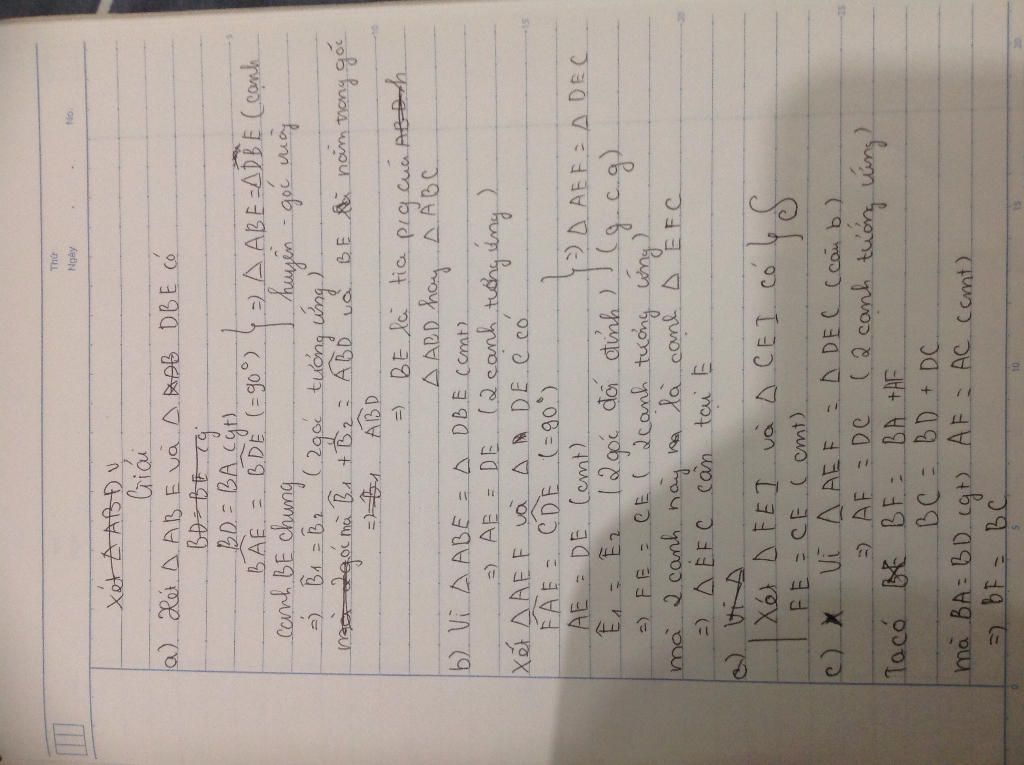 Thứ
Ngày No.
Xét △ ABD v
Giải
a) Xét △ AB E và △ DAB DBE có
BD = BE (g
BD = BA (gt)
BAE = BDE (=90°) } => △ ABE = △DBE (cạnh
cạnh BE chung huyền - góc nhọn)
=> B1 = B2 (2 góc tương ứng)
mà 2 góc mà B1 + B2 = ABD và BE nằm trong góc
=> B1 ABD
=> BE là tia p/g của AB D h
△ ABD hay △ ABC
b) Vì △ ABE = △ DBE (cmt)
=> AE = DE (2 cạnh tương ứng)
Xét △ AE F và △ DE C có
FAE = CDE (=90°)
AE = DE (cmt) } => △ AEF = △ DEC
E1 = E2 (2 góc đối đỉnh) (g c g)
=> FE = CE (2 cạnh tương ứng)
mà 2 cạnh này là cạnh △ EFC
=> △ EFC cân tại E
c) Vì △
Xét △ FEI và △ CEI có
FE = CE (cmt)
c) Vì △ AEF = △ DEC (câu b)
=> AF = DC (2 cạnh tương ứng)
Ta có BF BF = BA + AF
BC = BD + DC
mà BA = BD (gt) AF = AC (cmt)
=> BF = BC
5
10
15
20
25
0
5
10
15
20